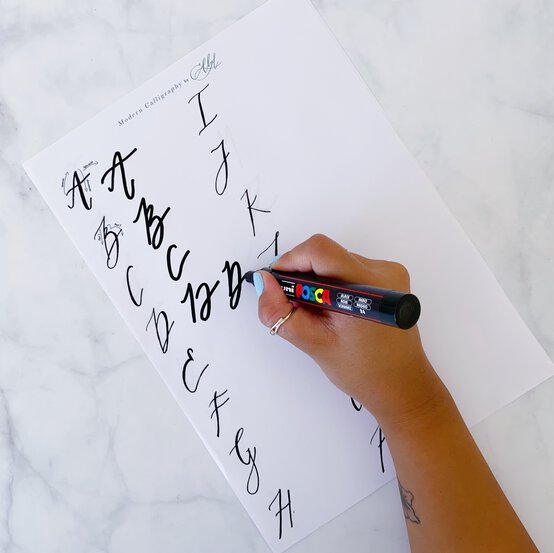 Modern Calligraphy by
A A I
B B J
C C K
D D D
E
F
G
H
uni POSCA